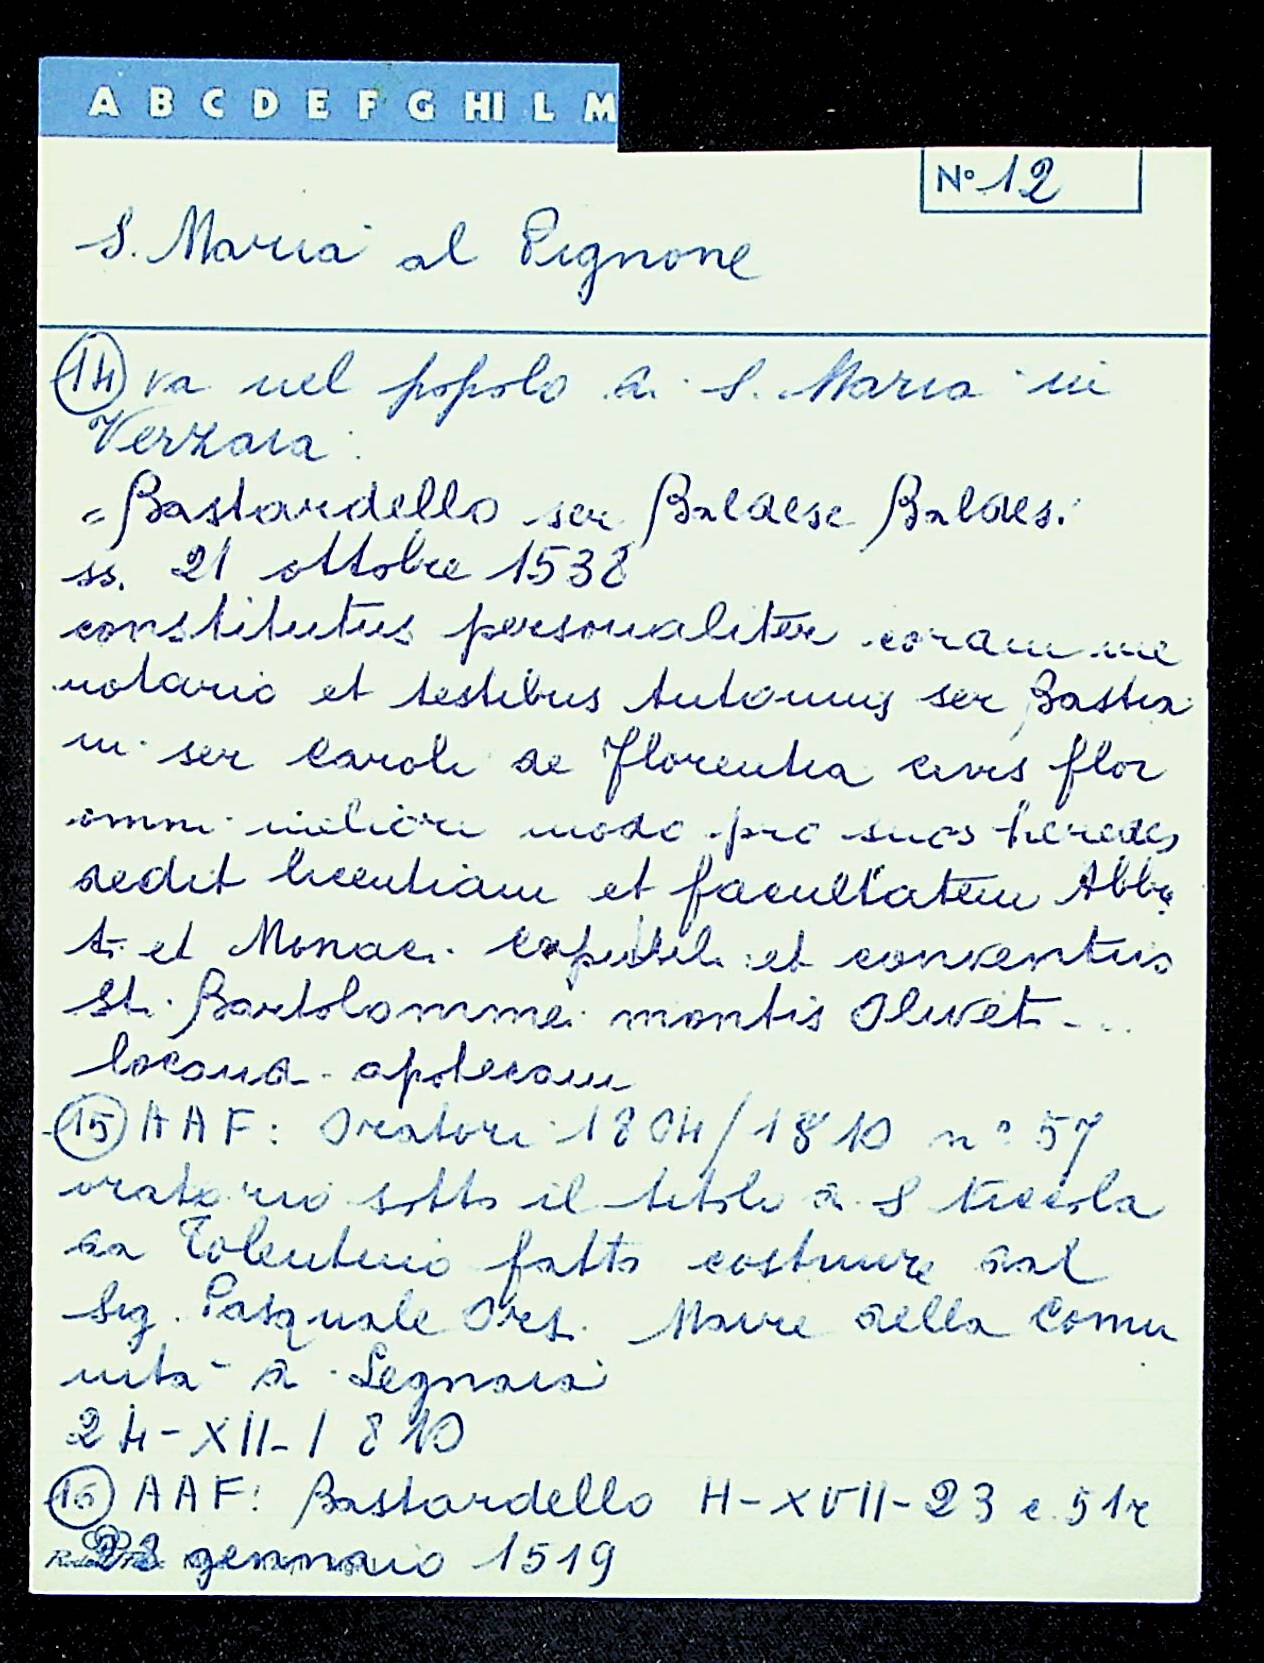 A B C D E F G HI L M
N° 12
S. Maria al Pignone
14 va nel popolo di S. Maria in
Verzaia:
= Bastardello ser Baldese Baldesi
ss. 21 ottobre 1538
constitutus personaliter coram me
notario et testibus Antonius ser Bastia
ni ser Caroli de Florentia civis flor
omni meliori modo pro suos heredes
dedit licentiam et facultatem Abba
ti et Monaci et conventus
Sti Bartolommei montis Oliveti ...
locandi apotecam
15 AAF: Oratori 1804/1810 n° 57
oratorio sotto il titolo di S Niccola
da Tolentino fatto costruire dal
Sig. Pasquale Orsi Maire della Comu
nità di Legnaia
24-XII-1810
16 AAF: Bastardello H-XVII-23 c. 51r
28 gennaio 1519